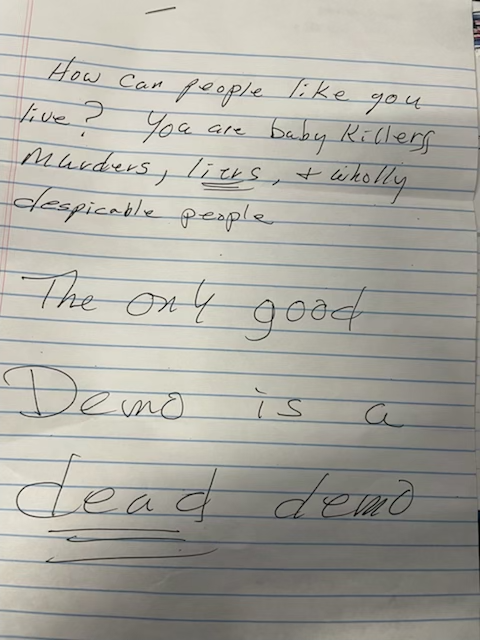 How can people like you
live? You are baby Killers
Murders, liers, + wholly
despicable people
The only good
Demo is a
dead demo